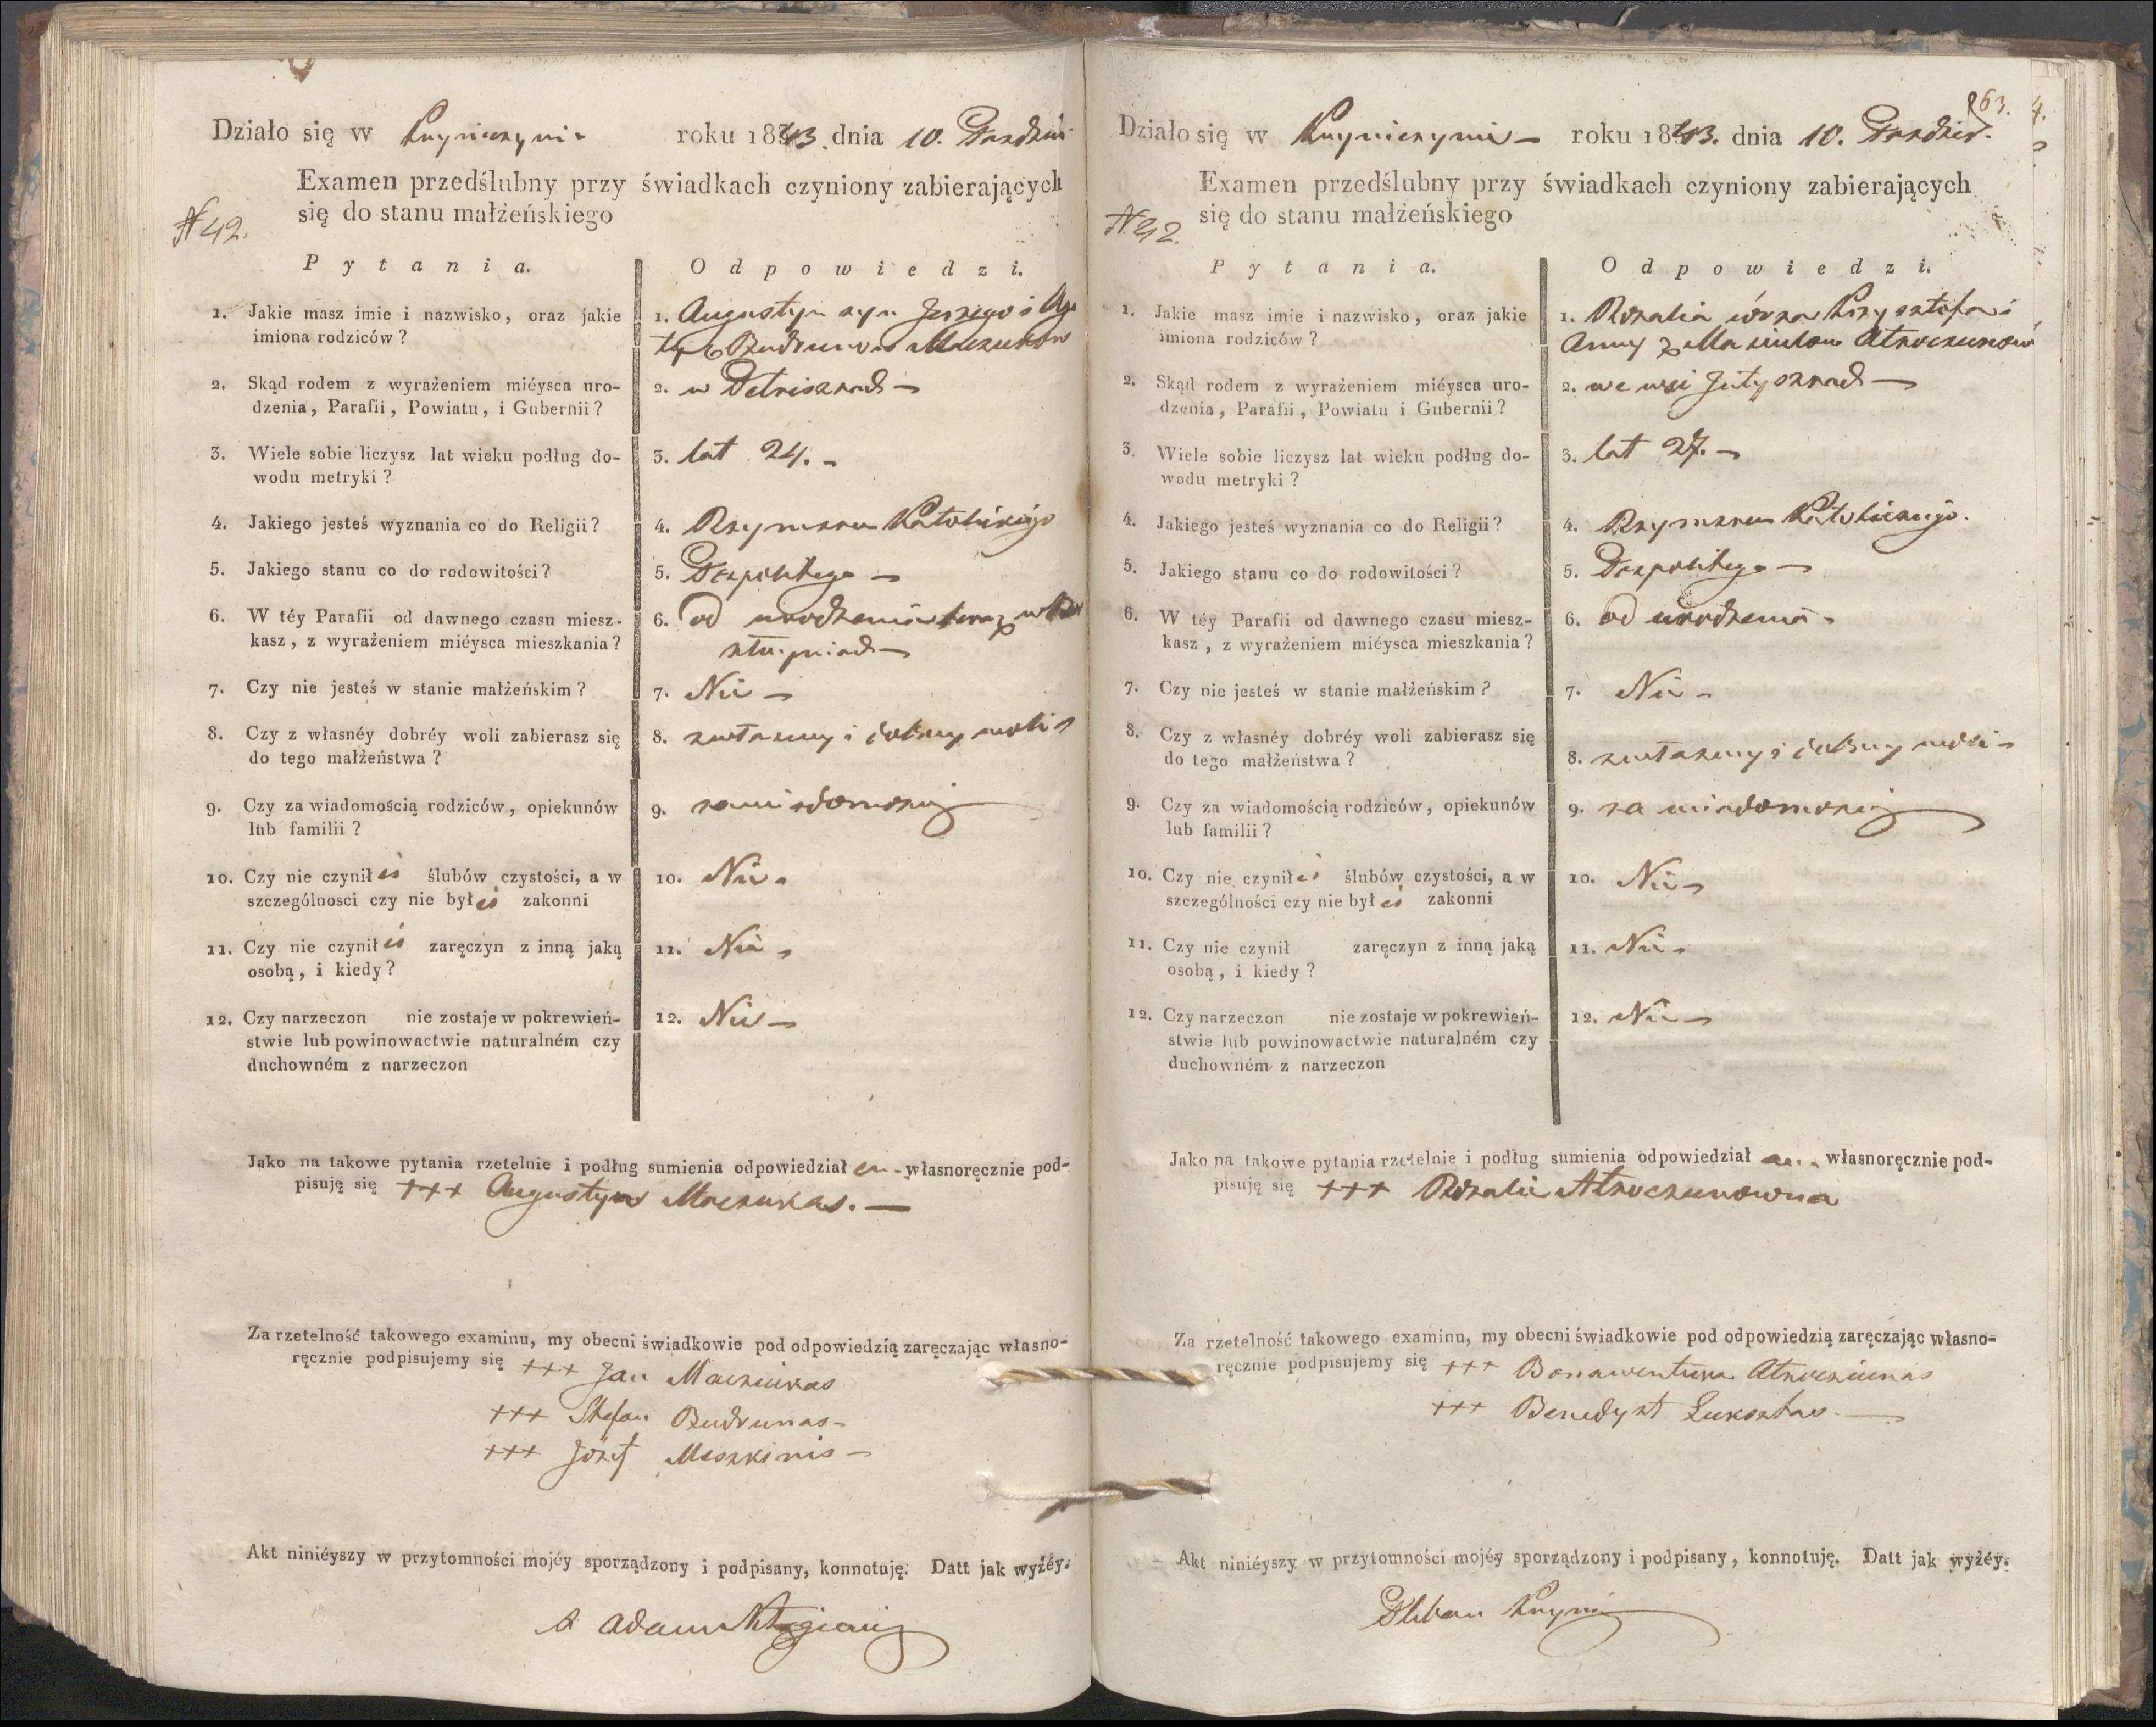 Działo się w Kupniszynie roku 1843 dnia 10. Paździer.
Examen przedślubny przy świadkach czyniony zabierających
się do stanu małżeńskiego
N 42.
Pytania. Odpowiedzi.
1. Jakie masz imie i nazwisko, oraz jakie
imiona rodziców?
1. Augustyn syn Jerzego i Aga
ty z Budrunow Maczukow
2. Skąd rodem z wyrażeniem miéysca uro-
dzenia, Parafii, Powiatu, i Gubernii?
2. w
3. Wiele sobie liczysz lat wieku podług do-
wodu metryki?
3. lat 24. –
4. Jakiego jesteś wyznania co do Religii?
4. Rzymsko Katolickiego
5. Jakiego stanu co do rodowitości?
5. Pospolitego –
6. W téy Parafii od dawnego czasu miesz-
kasz, z wyrażeniem miéysca mieszkania?
6. od urodzenia teraz w
7. Czy nie jesteś w stanie małżeńskim?
7. Nie –
8. Czy z własnéy dobréy woli zabierasz się
do tego małżeństwa?
8. z własney i dobrey woli –
9. Czy za wiadomością rodziców, opiekunów
lub familii?
9. za wiadomością
10. Czy nie czynił eś ślubów czystości, a w
szczególnosci czy nie był eś zakonni
10. Nie –
11. Czy nie czynił eś zaręczyn z inną jaką
osobą, i kiedy?
11. Nie –
12. Czy narzeczon nie zostaje w pokrewień-
stwie lub powinowactwie naturalném czy
duchowném z narzeczon
12. Nie –
Jako na takowe pytania rzetelnie i podług sumienia odpowiedział em – własnoręcznie pod-
pisuję się +++ Augustyn Maczukas. –
Za rzetelność takowego examinu, my obecni świadkowie pod odpowiedzią zaręczając własno-
ręcznie podpisujemy się +++ Jan Macziukas
+++ Stefan Budrunas –
+++ Józef Meszkinis –
Akt niniéyszy w przytomności mojéy sporządzony i podpisany, konnotuję. Datt jak wyżéy.
X Adam
63.
Działo się w roku 1843. dnia 10. Paździer.
Examen przedślubny przy świadkach czyniony zabierających
się do stanu małżeńskiego
N. 42.
Pytania. Odpowiedzi.
1. Jakie masz imie i nazwisko, oraz jakie
imiona rodziców?
1. Rozalia córka Krzysztofa i
Anny z
2. Skąd rodem z wyrażeniem miéysca uro-
dzenia, Parafii, Powiatu i Gubernii?
2. we wsi
3. Wiele sobie liczysz lat wieku podług do-
wodu metryki?
3. lat 27. –
4. Jakiego jesteś wyznania co do Religii?
4. Rzymsko Katolickiego.
5. Jakiego stanu co do rodowitości?
5. Pospolitego –
6. W téy Parafii od dawnego czasu miesz-
kasz, z wyrażeniem miéysca mieszkania?
6. od urodzenia –
7. Czy nie jesteś w stanie małżeńskim?
7. Nie –
8. Czy z własnéy dobréy woli zabierasz się
do tego małżeństwa?
8. z własney i dobrey woli –
9. Czy za wiadomością rodziców, opiekunów
lub familii?
9. za wiadomością
10. Czy nie czynił eś ślubów czystości, a w
szczególności czy nie był eś zakonni
10. Nie –
11. Czy nie czynił zaręczyn z inną jaką
osobą, i kiedy?
11. Nie –
12. Czy narzeczon nie zostaje w pokrewień-
stwie lub powinowactwie naturalném czy
duchowném z narzeczon
12. Nie –
Jako na takowe pytania rzetelnie i podług sumienia odpowiedział am – własnoręcznie pod-
pisuję się +++ Rozalia Atkoczunowna
Za rzetelność takowego examinu, my obecni świadkowie pod odpowiedzią zaręczając własno-
ręcznie podpisujemy się +++ Bonawentura Atkocziunas
+++ Benedykt Luksztas –
Akt niniéyszy w przytomności mojéy sporządzony i podpisany, konnotuję. Datt jak wyżéy.
Pleban